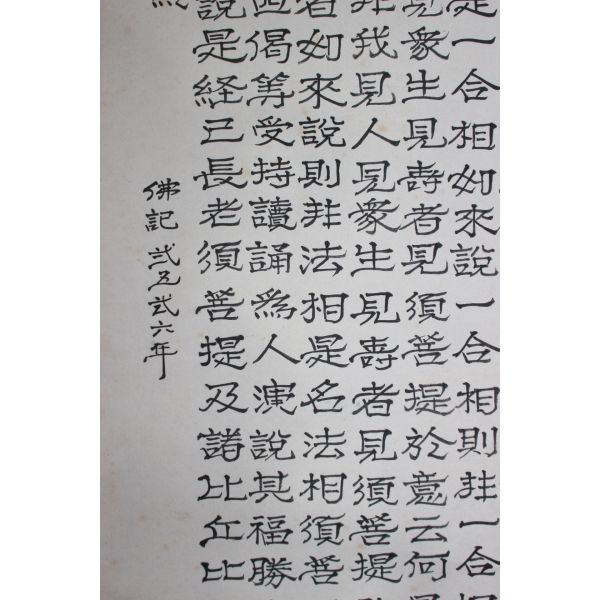 是一合相如來說一合相則非一合相
見衆生見壽者見須菩提於意云何
非我見人見衆生見壽者見須菩提
者如來說則非法相是名法相須菩
四偈等受持讀誦爲人演說其福勝
說是経已長老須菩提及諸比丘比
佛記 弍五弍六年